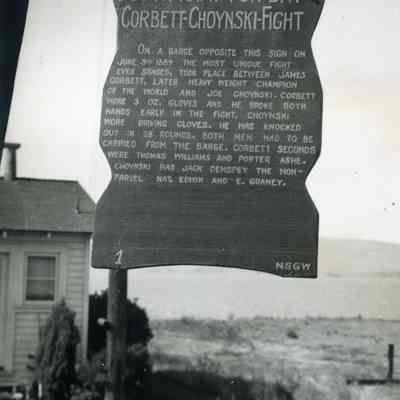 CORBETT-CHOYNSKI-FIGHT
ON A BARGE OPPOSITE THIS SIGN ON
JUNE 5TH 1889 THE MOST UNIQUE FIGHT
EVER STAGED, TOOK PLACE BETWEEN JAMES
CORBETT, LATER HEAVY WEIGHT CHAMPION
OF THE WORLD AND JOE CHOYNSKI. CORBETT
WORE 3 OZ. GLOVES AND HE BROKE BOTH
HANDS EARLY IN THE FIGHT, CHOYNSKI
WORE DRIVING GLOVES. HE WAS KNOCKED
OUT IN 28 ROUNDS. BOTH MEN HAD TO BE
CARRIED FROM THE BARGE. CORBETT SECONDS
WERE THOMAS WILLIAMS AND PORTER ASHE.
CHOYNSKI HAS JACK DEMPSEY THE NON-
PARIEL NAT. EDWIN AND E. GRANEY.
1
NSGW